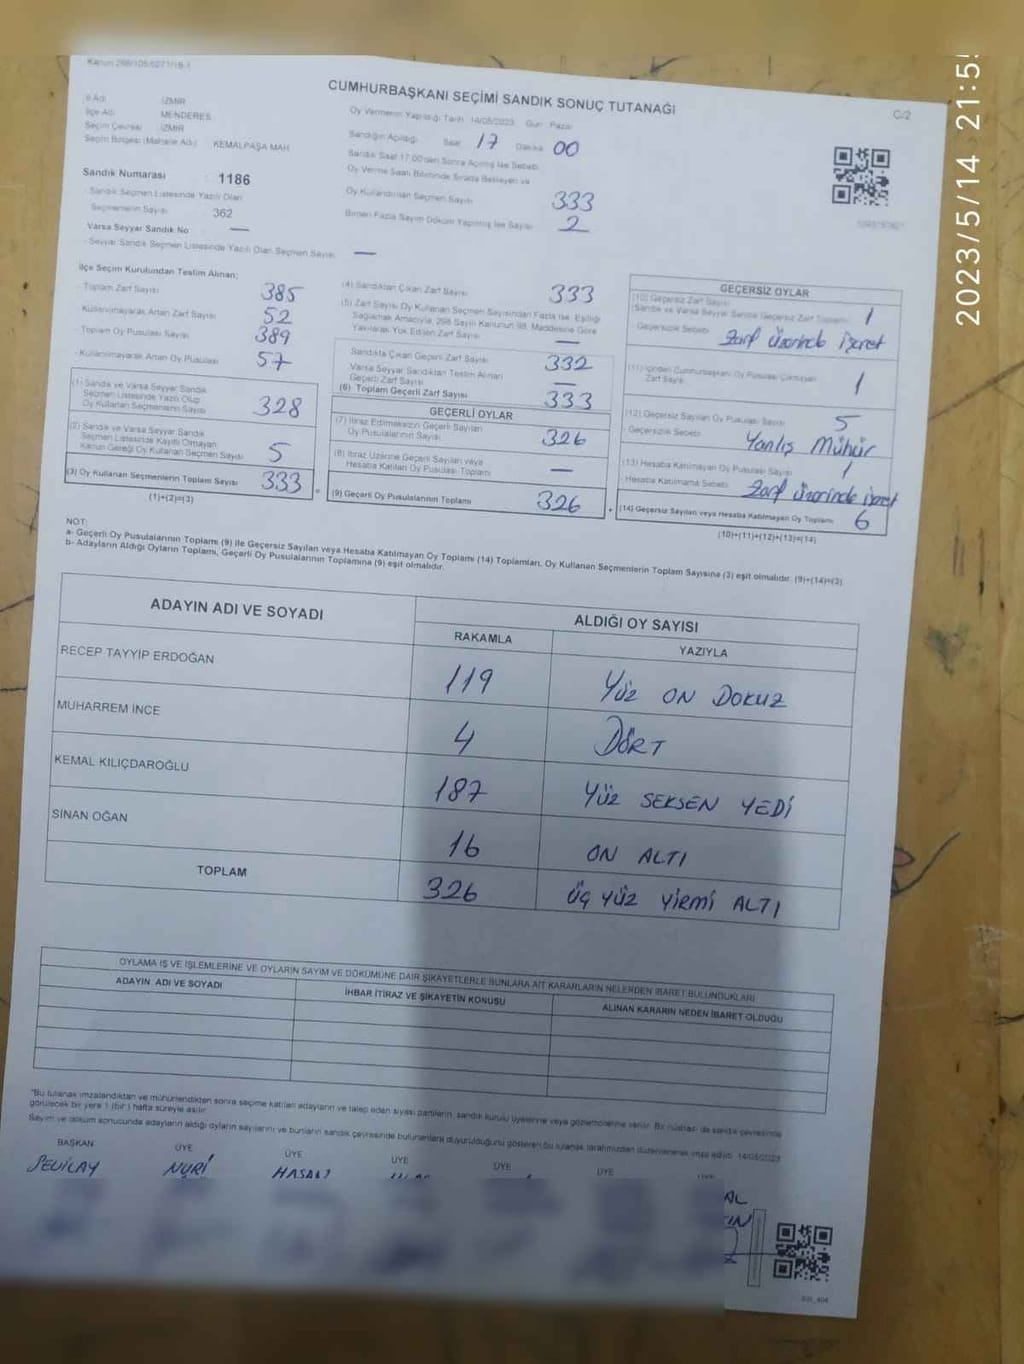 Kanun 298/105/6271/19-1
2023/5/14 21:5
CUMHURBAŞKANI SEÇİMİ SANDIK SONUÇ TUTANAĞI
C/2
İl Adı İZMİR
İlçe Adı MENDERES
Seçim Çevresi İZMİR
Seçim Bölgesi (Mahalle Adı) KEMALPAŞA MAH
Sandık Numarası 1186
Sandık Seçmen Listesinde Yazılı Olan
Seçmenlerin Sayısı 362
Varsa Seyyar Sandık No —
- Seyyar Sandık Seçmen Listesinde Yazılı Olan Seçmen Sayısı —
Oy Vermenin Yapıldığı Tarih 14/05/2023 Gün: Pazar
Sandığın Açıldığı Saat 17 Dakika 00
Sandık Saat 17.00'den Sonra Açılmış İse Sebebi
Oy Verme Saati Bitiminde Sırada Bekleyen ve
Oy Kullandırılan Seçmen Sayısı 333
Birden Fazla Sayım Döküm Yapılmış İse Sayısı 2
İlçe Seçim Kurulundan Teslim Alınan;
- Toplam Zarf Sayısı 385
- Kullanılmayarak Artan Zarf Sayısı 52
- Toplam Oy Pusulası Sayısı 389
- Kullanılmayarak Artan Oy Pusulası 57
(1) Sandık ve Varsa Seyyar Sandık
Seçmen Listesinde Yazılı Olup
Oy Kullanan Seçmenlerin Sayısı 328
(2) Sandık ve Varsa Seyyar Sandık
Seçmen Listesinde Kayıtlı Olmayan
Kanun Gereği Oy Kullanan Seçmen Sayısı 5
(3) Oy Kullanan Seçmenlerin Toplam Sayısı 333
(1)+(2)=(3)
(4) Sandıktan Çıkan Zarf Sayısı 333
(5) Zarf Sayısı Oy Kullanan Seçmen Sayısından Fazla İse, Eşitliği
Sağlamak Amacıyla, 298 Sayılı Kanunun 98. Maddesine Göre
Yakılarak Yok Edilen Zarf Sayısı —
Sandıkta Çıkan Geçerli Zarf Sayısı 332
Varsa Seyyar Sandıktan Teslim Alınan
Geçerli Zarf Sayısı —
(6) Toplam Geçerli Zarf Sayısı 333
GEÇERLİ OYLAR
(7) İtiraz Edilmeksizin Geçerli Sayılan
Oy Pusulalarının Sayısı 326
(8) İtiraz Üzerine Geçerli Sayılan veya
Hesaba Katılan Oy Pusulası Toplamı —
(9) Geçerli Oy Pusulalarının Toplamı 326
GEÇERSİZ OYLAR
(10) Geçersiz Zarf Sayısı
(Sandık ve Varsa Seyyar Sandık Geçersiz Zarf Toplamı) 1
- Geçersizlik Sebebi Zarf üzerinde işaret
(11) İçinden Cumhurbaşkanı Oy Pusulası Çıkmayan
Zarf Sayısı 1
(12) Geçersiz Sayılan Oy Pusulası Sayısı 5
- Geçersizlik Sebebi Yanlış Mühür
(13) Hesaba Katılmayan Oy Pusulası Sayısı 1
- Hesaba Katılmama Sebebi Zarf üzerinde işaret
(14) Geçersiz Sayılan veya Hesaba Katılmayan Oy Toplamı 6
(10)+(11)+(12)+(13)=(14)
NOT:
a- Geçerli Oy Pusulalarının Toplamı (9) ile Geçersiz Sayılan veya Hesaba Katılmayan Oy Toplamı (14) Toplamları, Oy Kullanan Seçmenlerin Toplam Sayısına (3) eşit olmalıdır. (9)+(14)=(3)
b- Adayların Aldığı Oyların Toplamı, Geçerli Oy Pusulalarının Toplamına (9) eşit olmalıdır.
ADAYIN ADI VE SOYADI
ALDIĞI OY SAYISI
RAKAMLA YAZIYLA
RECEP TAYYİP ERDOĞAN 119 Yüz ON DOKUZ
MUHARREM İNCE 4 DÖRT
KEMAL KILIÇDAROĞLU 187 YÜZ SEKSEN YEDİ
SİNAN OĞAN 16 ON ALTI
TOPLAM 326 ÜÇ YÜZ YİRMİ ALTI
OYLAMA İŞ VE İŞLEMLERİNE VE OYLARIN SAYIM VE DÖKÜMÜNE DAİR ŞİKAYETLERLE BUNLARA AİT KARARLARIN NELERDEN İBARET BULUNDUKLARI
ADAYIN ADI VE SOYADI İHBAR İTİRAZ VE ŞİKAYETİN KONUSU ALINAN KARARIN NEDEN İBARET OLDUĞU
"Bu tutanak imzalandıktan ve mühürlendikten sonra seçime katılan adayların ve talep eden siyasi partilerin, sandık kurulu üyelerine veya gözlemcilerine verilir. Bir nüshası da sandık çevresinde
görülecek bir yere 1 (bir) hafta süreyle asılır.
Sayım ve döküm sonucunda adayların aldığı oyların sayılarını ve bunların sandık çevresinde bulunanlara duyurulduğunu gösteren bu tutanak tarafımızdan düzenlenerek imza edildi. 14/05/2023
BAŞKAN ÜYE ÜYE ÜYE ÜYE ÜYE
NURİ HASAN